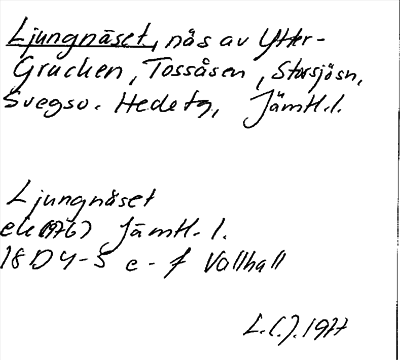 Ljungnäset, näs av Ytter-
Grucken, Tossåsen, Storsjösn,
Svegsv. Hede tg, Jämtl.l.
Ljungnäset
ek(1976) Jämtl. l.
18D 4-5 e-f Vallhall
L.C.J. 1977